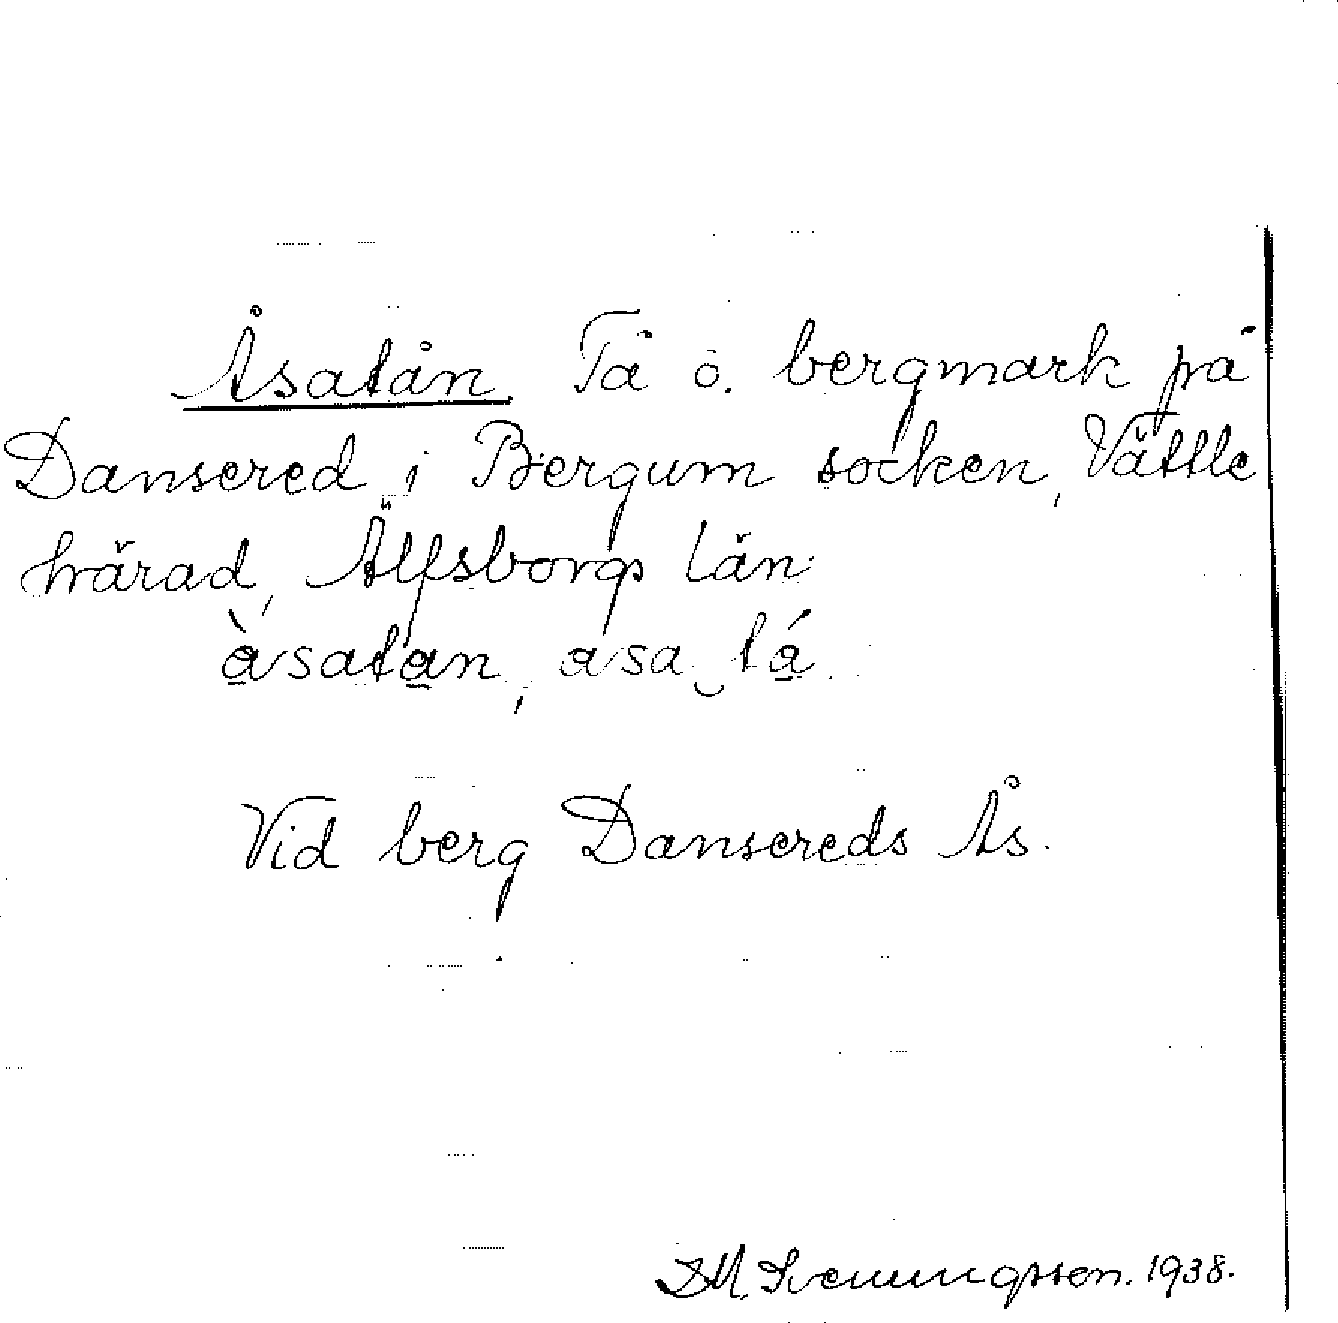 Åsatån Tå o. bergmark på
Dansered i Bergum socken, Vättle
härad, Älfsborgs län
àsatan, asa‿tá.
Vid berg Dansereds Ås.
D.M. Svenungsson. 1938.